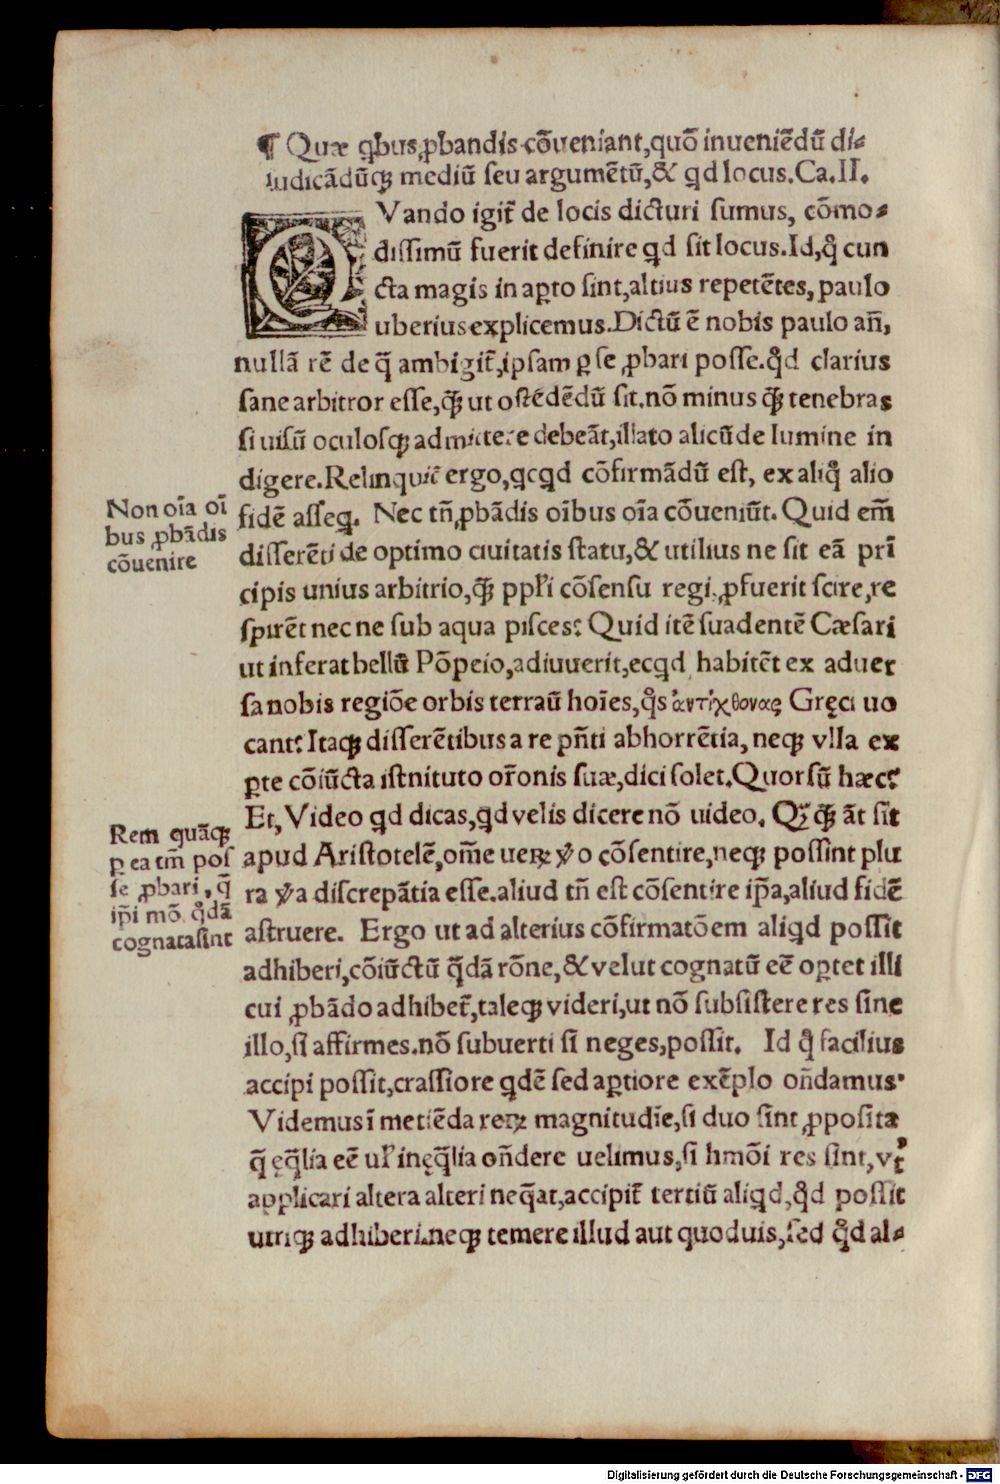 ¶ Quæ qbus ꝓbandis cōueniant, quō inueniēdū di-
iudicādūqꝫ mediū seu argumētū, & qd locus. Ca. II.
QVando igit̄ de locis dicturi sumus, cōmo-
dissimū fuerit definire qd sit locus. Id, qͦ cun
cta magis in aꝑto sint, altius repetētes, paulo
uberius explicemus. Dictū ē nobis paulo an̄,
nullā rē de q̄ ambigit̄, ipsam ꝑ se ꝓbari posse. qd̛ clarius
sane arbitror esse, q̄ꝫ ut ostēdēdū sit. nō minus q̄ꝫ tenebras
si uisū oculosqꝫ admittere debeāt, illato alicūde lumine in
digere. Relinquit̄ ergo, qcqd cōfirmādū est, ex aliqͦ alio
fidē asseq. Nec tn̄ ꝓbādis oībus oīa cōueniūt. Quid em̄
Non oīa oī
bus ꝓbādis
cōuenire
disserēti de optimo ciuitatis statu, & utilius ne sit eā prī
cipis unius arbitrio, q̄ꝫ ppl̄i cōsensu regi, ꝓfuerit scire, re
spirēt nec ne sub aqua pisces: Quid itē suadentē Cæsari
ut inferat bellū Pōpeio, adiuuerit, ecqd habitēt ex aduer
sa nobis regiōe orbis terraū hoīes, qͦs ἀντίχθονας Gręci uo
cant: Itaqꝫ disserētibus a re pn̄ti abhorrētia, neqꝫ vlla ex
ꝑte cōiūcta istnituto or̄onis suæ, dici solet. Quorsū hæc:
Et, Video qd dicas, qd velis dicere nō uideo. Qꝫ q̄ꝫ āt sit
Rem quāqꝫ
ꝑ ea tm̄ pos
se ꝓbari, q̄
ip̄i mō qͦdā
cognata sint
apud Aristotelē, om̄e ueꝝ ꝟo cōsentire, neqꝫ possint plu
ra ꝟa discrepātia esse. aliud tn̄ est cōsentire ip̄a, aliud fidē
astruere. Ergo ut ad alterius cōfirmatōem aliqd possit
adhiberi, cōiūctū q̄dā rōne, & velut cognatū eē oꝑtet illi
cui ꝓbādo adhibet̄, taleqꝫ videri, ut nō subsistere res sine
illo, si affirmes. nō subuerti si neges, possit. Id qͦ facilius
accipi possit, crassiore qdē sed aꝑtiore exēplo on̄damus.
Videmus ī metiēda reꝝ magnitudīe, si duo sint ꝓposita
q̄ ęq̄lia eē ul̄ inęq̄lia on̄dere uelimus, si hmōi res sint, vt̛
applicari altera alteri neq̄at, accipit̄ tertiū aliqd, qd̛ possit
utriqꝫ adhiberi. neqꝫ temere illud aut quoduis, sed qd̛ al-
Digitalisierung gefördert durch die Deutsche Forschungsgemeinschaft - DFG